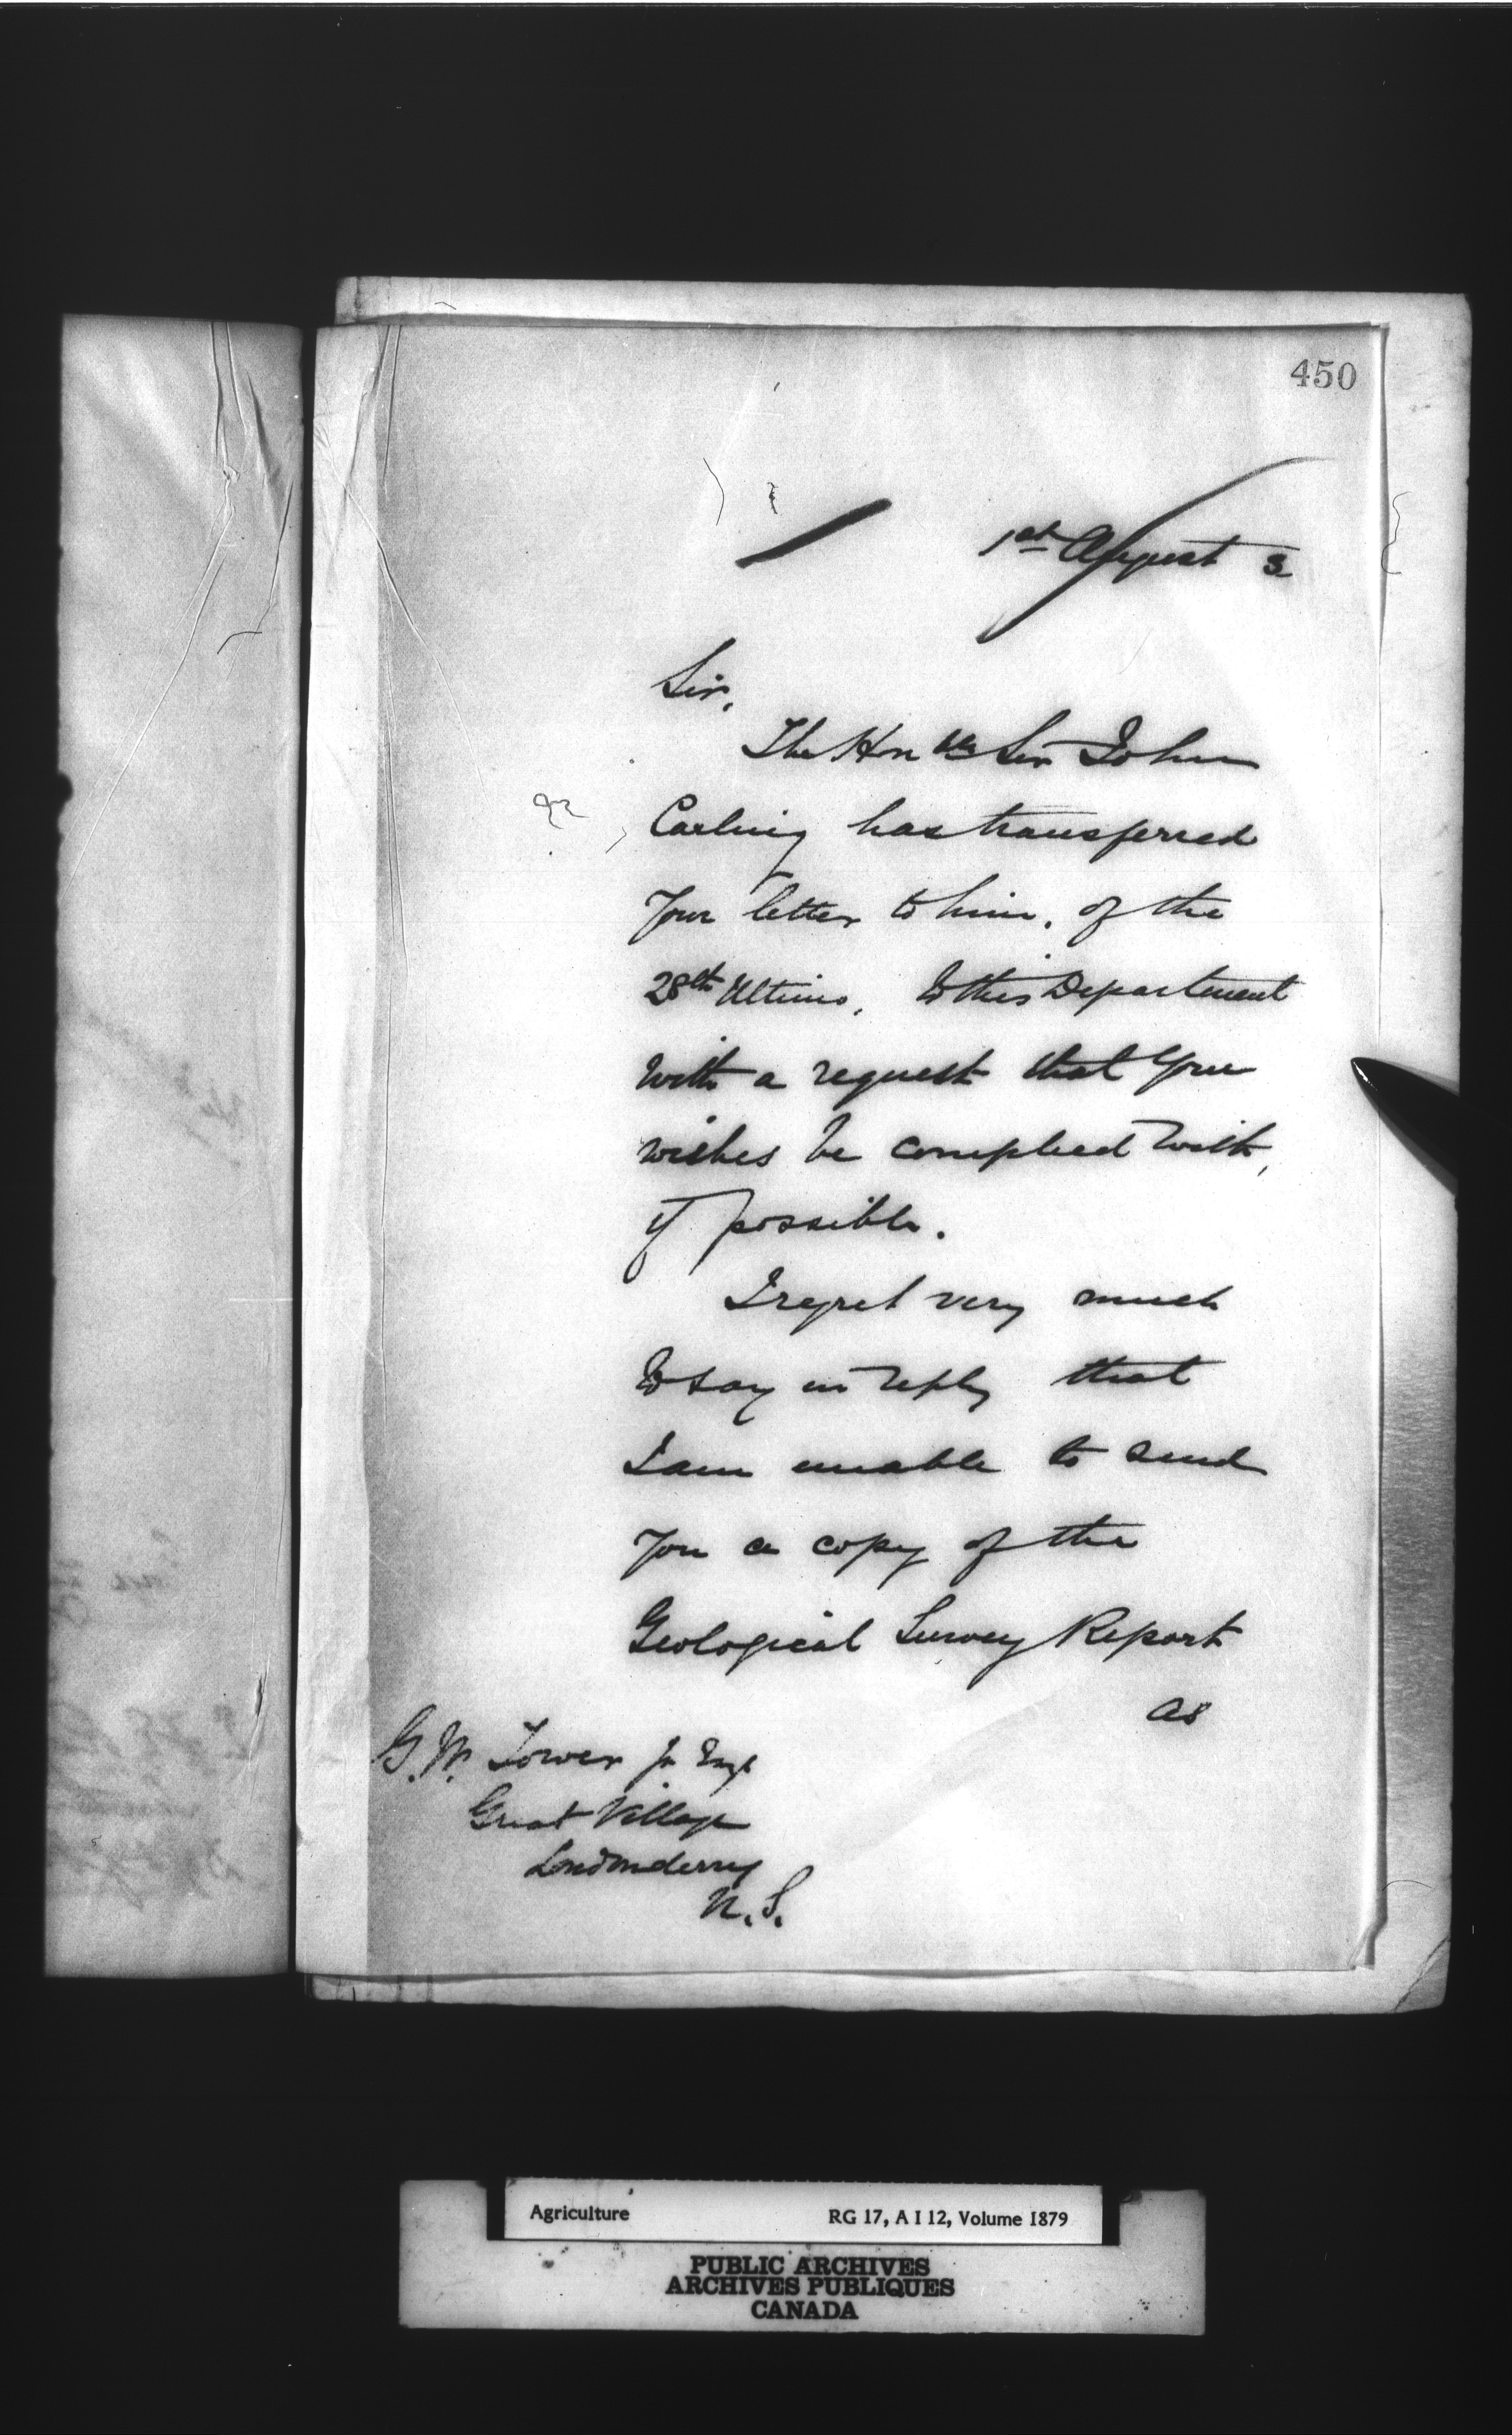 450
1st August 3
Sir,
The Honble Sir John
Carling has transferred
your letter to him, of the
28th Ultimo, to this Department
with a request that your
wishes be complied with,
if possible.
I regret very much
to say in reply that
I am unable to send
you a copy of the
Geological Survey Report
as
G. W. Tower Jr Esqr
Great Village
Londonderry
N.S.
Agriculture RG 17, A I 12, Volume 1879
PUBLIC ARCHIVES
ARCHIVES PUBLIQUES
CANADA